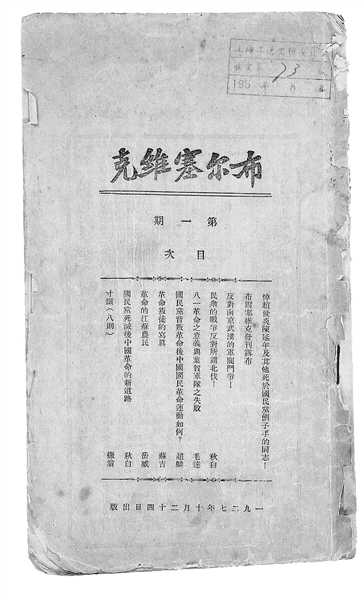 布尔塞維克
第一期
目次
悼趙世炎陳延年及其他死於國民黨劊子手的同志！
布爾塞維克發刊露布
反對南京武漢的軍閥鬥爭！
民衆的戰爭反對所謂北伐！ 秋白
八一革命之意義與葉賀軍隊之失敗 毛達
國民黨背叛革命後中國國民革命運動如何？ 超麟
革命叛徒的寫眞 蘇吉
革命的江蘇農民 岳威
國民黨死滅後中國革命的新道路 秋白
寸鐵（八則） 撒翁
一九二七年十月二十四日出版
73
195 年 月